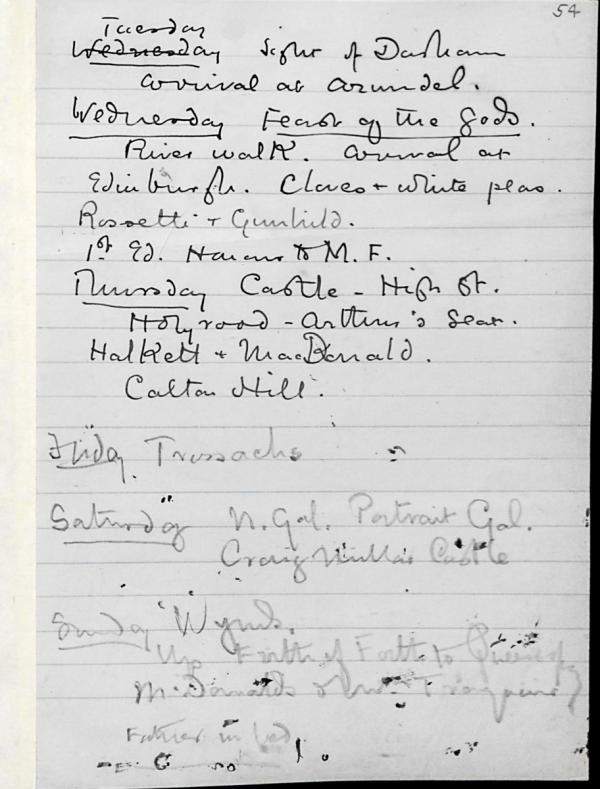 54
Tuesday
Wednesday Sight of Durham
arrival at arundel.
Wednesday Feast of the Gods.
River walk. arrival at
Edinburgh. Claret + white peas.
Rossetti + Gunhild.
1st Ed. Honour to M. F.
Thursday Castle - High St.
Holyrood - Arthur's Seat.
Halkett + MacDonald.
Calton Hill.
Friday Trossachs
Saturday N. Gal. Portrait Gal.
Craigmillar Castle
Sunday Wynds.
Up Firth of Forth to
McDonalds
Father in bed